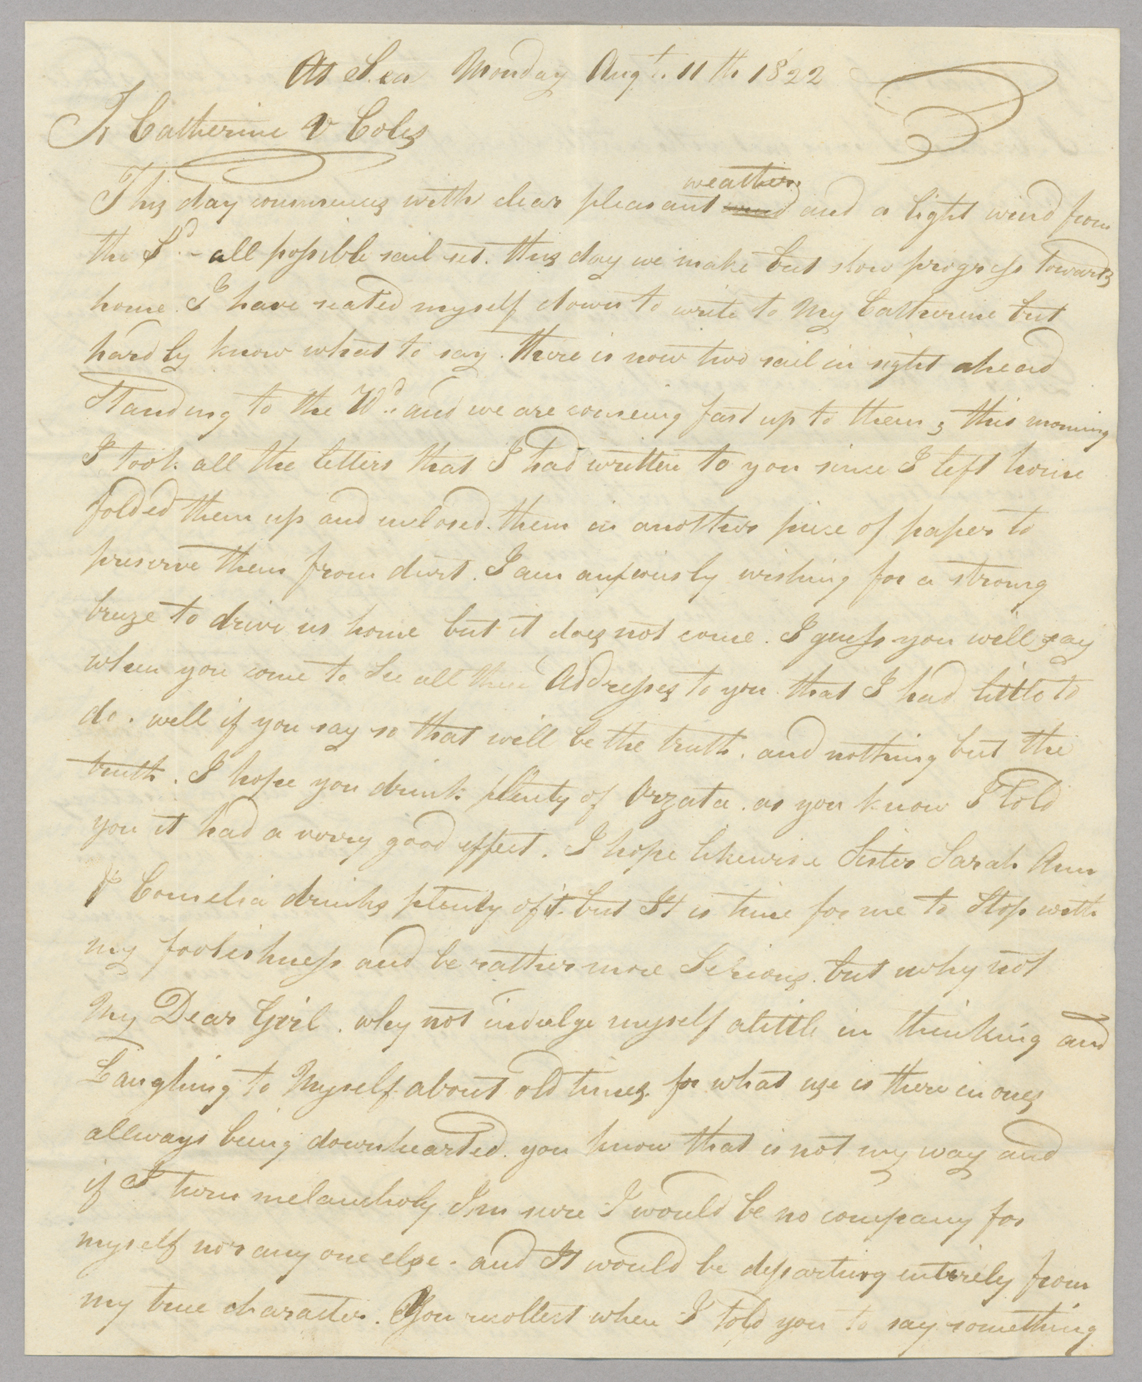 At Sea Monday Augt. 11th 1822
To Catherine V Coles
weather
This day commences with clear pleasant wind and a light wind from
the Sd. - all possible sail set. this day we make but slow progress towards
home. I have seated myself down to write to My Catherine but
hardly know what to say. there is now two sail in sight ahead
Standing to the Wd. and we are comeing fast up to them, this morning
I took all the letters that I had written to you since I left home
folded them up and inclosed them in another piece of paper to
preserve them from dirt. I am anxiously wishing for a strong
breeze to drive us home but it does not come. I guess you will say
when you come to See all these Addresses to you that I had little to
do. well if you say so that will be the truth. and nothing but the
truth. I hope you drink plenty of Orzata. as you know I told
you it had a verry good effect. I hope likewise Sister Sarah Ann
& Cornelia drinks plenty of it. but It is time for me to Stop with
my foolishness and be rather more Serious. but why not
My Dear Girl. why not indulge myself alittle in thinking and
Laughing to Myself about old times. for what use is there in ones
allways being downhearted. you know that is not my way and
if I turn melancholy I'm sure I would be no company for
myself nor any one else. and It would be departing entirely from
my true character. You recollect when I told you to say something